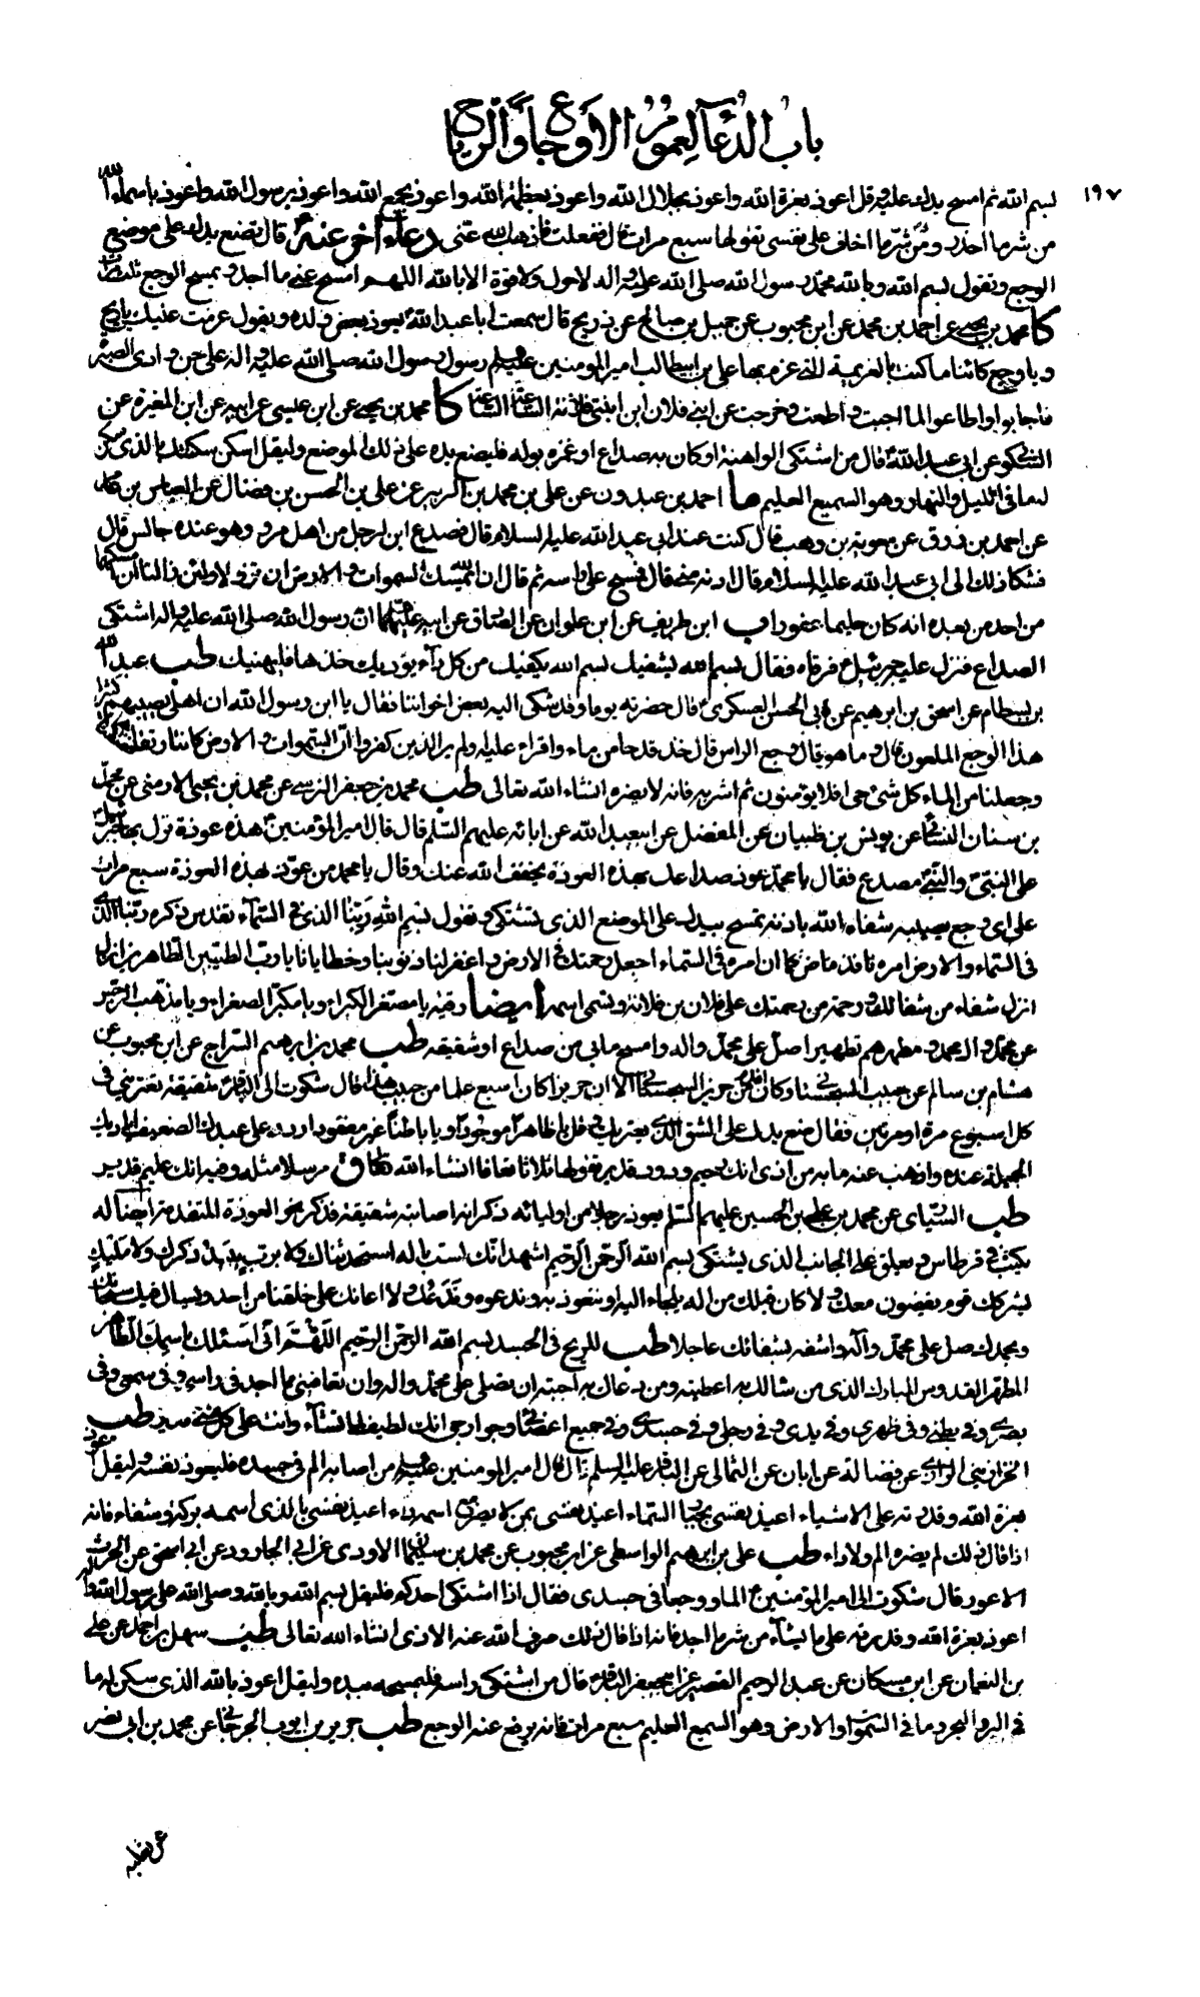 باب الدعآء لعموم الأوجاع والرياح
١٩٧
بسم الله ثم امسح يدك عليه وقل اعوذ بعزة الله واعوذ بجلال الله واعوذ بعظمة الله واعوذ بجمع الله واعوذ برسول الله واعوذ باسماء الله
من شر ما احذر ومن شر ما اخاف على نفسى تقولها سبع مرات قال ففعلت فاذهب الله عنى دعاء آخر عنه قال تضع يدك على موضع
الوجع وتقول بسم الله وبالله محمد رسول الله صلى الله عليه واله لا حول ولا قوة الا بالله اللهم امسح عنى ما اجد وتمسح الوجع ثلث مرات
كا محمد بن يحيى عن احمد بن محمد عن ابن محبوب عن جميل بن صالح عن ذريح قال سمعت ابا عبد الله يعوذ بعض ولده ويقول عزمت عليك يا ريح
ويا وجع كائنا ما كنت بالعزيمة التى عزم بها على بن ابيطالب امير المومنين رسول رسول الله صلى الله عليه واله على جن وادى الصبرة
فاجابوا واطاعوا لما اجبت واطعت وخرجت عن ابنى فلان ابن ابنتى فلانة الساعة الساعة كا محمد بن يحيى عن ابن عيسى عن ابيه عن ابن المغيرة عن
عن ابى عبد الله قال من اشتكى الواهنة او كان به صداع او غمزه بوله فليضع يده على ذلك الموضع وليقل اسكن سكنتك بالذى سكن
له ما فى الليل والنهار وهو السميع العليم ما احمد بن عبدون عن على بن محمد بن الزبير عن على بن الحسن بن فضال عن العباس بن عامر
عن احمد بن رزق عن معوية بن وهب قال كنت عند ابى عبد الله عليه السلام قال فصدع ابن لرجل من اهل مرو وهو عنده جالس قال
فشكا ذلك الى ابى عبد الله عليه السلام قال ادنه منى قال فمسح على راسه ثم قال ان الله يمسك السموات والارض ان تزولا ولئن زالتا ان امسكهما
من احد من بعده انه كان حليما غفورا ب ابن طريف عن ابن علوان عن الصادق عن ابيه ان رسول الله صلى الله عليه واله اشتكى
الصداع فنزل عليه جبرئيل فرقاه فقال بسم الله يشفيك بسم الله يكفيك من كل داء يؤذيك خذها فليهنيك طب عبد الله
بن بسطام عن اسحق بن ابرهيم عن ابى الحسن العسكرى قال حضرته يوما وقد شكى اليه بعض اخواننا فقال يا ابن رسول الله ان اهلى يصيبهم كثيرا
هذا الوجع الملعون قال وما هو قال وجع الراس قال خذ قدحا من ماء واقراء عليه اولم ير الذين كفروا ان السموات والارض كانتا رتقا ففتقناهما
وجعلنا من الماء كل شىء حى افلا يؤمنون ثم اشربه فانه لا يضره انشاء الله تعالى طب محمد بن جعفر البرسى عن محمد بن يحيى الارمنى عن محمد
بن سنان عن يونس بن ظبيان عن المفضل عن ابيعبد الله عن ابائه عليهم السلم قال قال امير المؤمنين هذه عوذة نزل بها جبرئيل
على النبى والنبى مصدع فقال يا محمد عوذ صداعك بهذه العوذة يخفف الله عنك وقال يا محمد من عوذ بهذه العوذة سبع مرات
على اى وجع يصيبه شفاه الله باذنه تمسح بيدك على الموضع الذى تشتكى وتقول بسم الله ربنا الذى فى السمآء تقدس ذكره ربنا الذى
فى السماء والارض امره نافذ ماض كما ان امره فى السماء اجعل رحمتك فى الارض واغفر لنا ذنوبنا وخطايانا يا رب الطيبين الطاهرين
انزل شفاء من شفائك ورحمة من رحمتك على فلان بن فلانة وتسمى اسمه ايضا رقية يا مصغر الكبراء ويا مكبر الصغراء ويا مذهب الرجس
عن محمد وال محمد ومطهرهم تطهيرا صل على محمد واله وامسح ما بى من صداع او شقيقه طب محمد بن ابرهيم السراج عن ابن محبوب عن
هشام بن سالم عن حبيب السجستانى وكان اقدم من حريز السجستانى الا ان حريزا كان اسبغ علما من حبيب هذا قال شكوت الى الباقر شقيقة تعترينى فى
كل اسبوع مرة او مرتين فقال ضع يدك على الشق الذى يعتريك وقل يا ظاهرا موجودا ويا باطنا غير مفقود اردد على عبدك الضعيف اياديك
الجميلة عنده واذهب عنه ما به من اذى انك رحيم ودود قدير تقولها ثلاثا تعافا انشاء الله مرسلا مثله وفيه انك عليم قدير
طب السيارى عن محمد بن على بن الحسين عليهم السلم يعوذ رجلا من اوليائه ذكر انه اصابته شقيقة فذكر نحو العوذة المتقدمة
يكتب فى قرطاس ويعلق على الجانب الذى يشتكى بسم الله الرحمن الرحيم اشهد انك لست باله استحدثناك ولا برب يبيد ذكرك ولا مليك
يشركك قوم يقضون معك ولا كان قبلك من اله نلجاء اليه او نتعوذ به وندعوه وندعك ولا اعانك على خلقنا من احد فيك سبحانك
وبحمدك صل على محمد وآله واشفه بشفائك عاجلا طب للريح فى الجسد بسم الله الرحمن الرحيم اللهم انى اسئلك باسمك الطاهر
المطهر القدوس المبارك الذى من سالك به اعطيته ومن دعاك به اجبته ان تصلى على محمد واله وان تعافينى مما اجد فى راسى وفى سمعى وفى
بصرى وفى بطنى وفى ظهرى وفى يدى وفى رجلى وفى جسدى وفى جميع اعضائى وجوارحى انك لطيف لما تشآء وانت على كل شىء قدير طب
الخرازينى الرازى عن فضالة عن ابان عن الثمالى عن الباقر عليه السلم قال قال امير المومنين من اصابه الم فى جسده فليعوذ نفسه وليقل اعوذ
بعزة الله وقدرته على الاشياء اعيذ نفسى بجبار السماء اعيذ نفسى بمن لا يضر مع اسمه داء اعيذ نفسى بالذى اسمه بركة وشفاء فانه
اذا قال ذلك لم يضره الم ولا داء طب على بن ابرهيم الواسطى عن ابن محبوب عن محمد بن سليمان الاودى عن ابى الجارود عن ابى اسحق عن الحرث
الاعور قال شكوت الى امير المؤمنين الما ووجعا فى جسدى فقال اذا اشتكى احدكم فليقل بسم الله وبالله وصلى الله على رسول الله واله
اعوذ بعزة الله وقدرته على ما يشآء من شر ما اجد فانه اذا قال ذلك صرف الله عنه الاذى انشاء الله تعالى طب سهل بن احمد عن على
بن النعمان عن ابن مسكان عن عبد الرحيم القصير عن ابيجعفر الباقر قال من اشتكى راسه فليمسحه بيده وليقل اعوذ بالله الذى سكن له ما
فى البر والبحر وما فى السموات والارض وهو السميع العليم سبع مرات فانه يرفع عنه الوجع طب حريز بن ايوب الجرجانى عن محمد بن ابى نصر